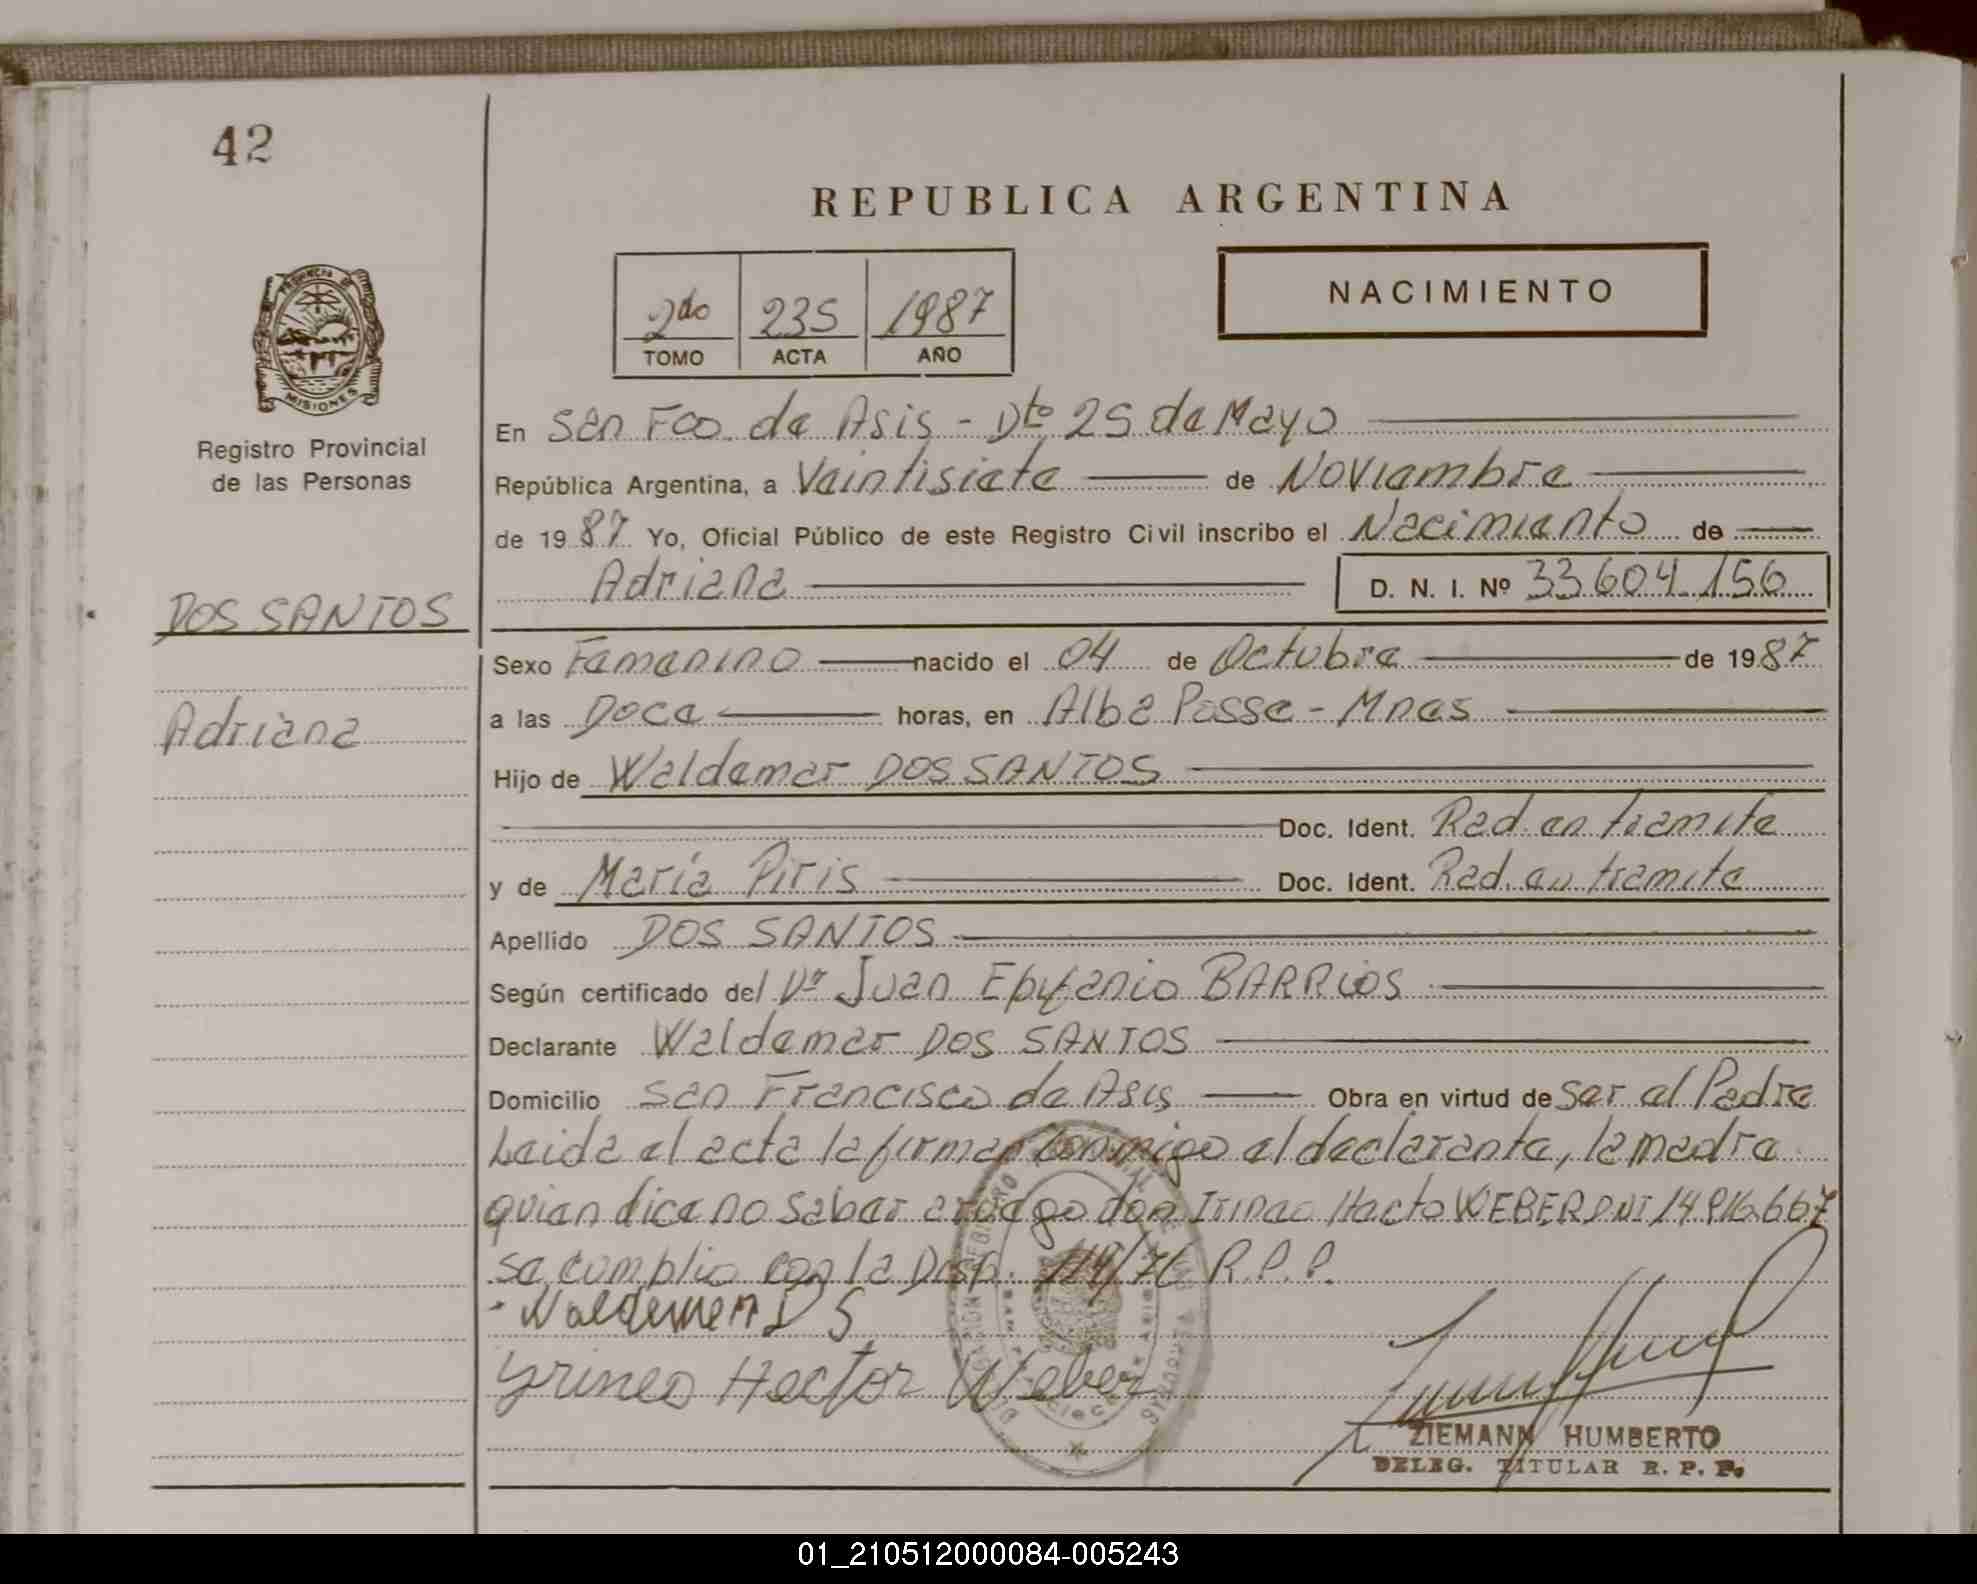 42
REPUBLICA ARGENTINA
NACIMIENTO
2do 235 1987
TOMO ACTA AÑO
PROVINCIA DE
MISIONES
Registro Provincial
de las Personas
En San Fco. de Asis - Dto 25 de Mayo
República Argentina, a Veintisiete de Noviembre
de 1987 Yo, Oficial Público de este Registro Civil inscribo el Nacimiento de
Adriana D. N. I. Nº 33.604.156
DOS SANTOS
Sexo Femenino nacido el 04 de Octubre de 1987
Adriana
a las Doce horas, en Alba Posse - Mnes
Hijo de Waldemar DOS SANTOS
Doc. Ident. Rad. en tramite
y de María Piris Doc. Ident. Rad. en tramite
Apellido DOS SANTOS
Según certificado del Dr Juan Epifanio BARRIOS
Declarante Waldemar DOS SANTOS
Domicilio San Francisco de Asis Obra en virtud de ser el Padre
Leida el acta la firman conmigo el declarante, la madre
quien dice no saber a ruego don Irineo Hecto WEBER DNI 14.916.667
se cumplio con la Disp. 114/76 R.P.P.
Waldemar D S
Yrineo Hector Weber
ZIEMANN HUMBERTO
DELEG. TITULAR R. P. P.
01_210512000084-005243